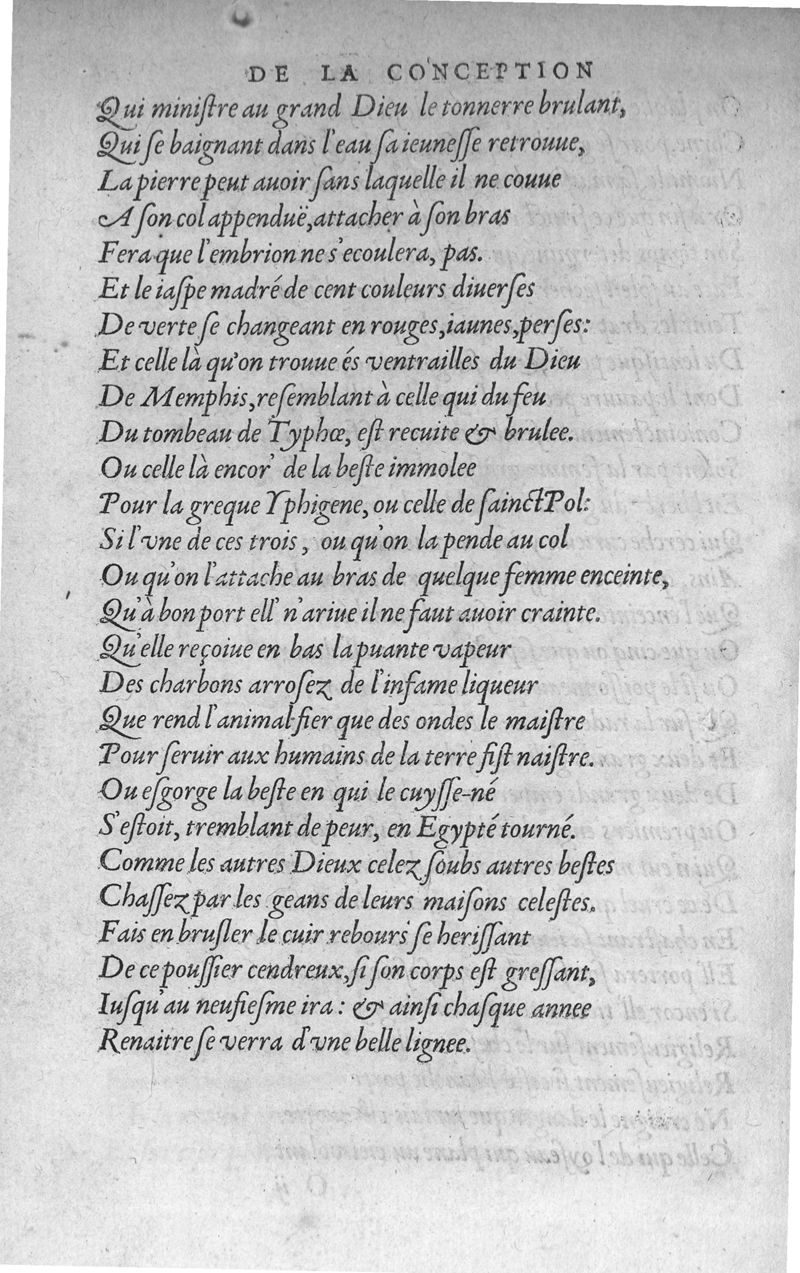 DE LA CONCEPTION
Qui miniſtre au grand Dieu le tonnerre brulant,
Qui ſe baignant dans l'eau ſa ieuneſſe retrouue,
La pierre peut auoir ſans laquelle il ne couue
A ſon col appenduë, attacher à ſon bras
Fera que l'embrion ne s'ecoulera, pas.
Et le iaſpe madré de cent couleurs diuerſes
De verte ſe changeant en rouges, iaunes, perſes:
Et celle là qu'on trouue és ventrailles du Dieu
De Memphis, reſemblant à celle qui du feu
Du tombeau de Typhœ, eſt recuite & brulee.
Ou celle là encor' de la beſte immolee
Pour la greque Yphigene, ou celle de ſainct Pol:
Si l'vne de ces trois, ou qu'on la pende au col
Ou qu'on l'attache au bras de quelque femme enceinte,
Qu'à bon port ell' n'ariue il ne faut auoir crainte.
Qu'elle reçoiue en bas la puante vapeur
Des charbons arroſez de l'infame liqueur
Que rend l'animal fier que des ondes le maiſtre
Pour ſeruir aux humains de la terre fiſt naiſtre.
Ou eſgorge la beſte en qui le cuyſſe-né
S'eſtoit, tremblant de peur, en Egypté tourné.
Comme les autres Dieux celez ſoubs autres beſtes
Chaſſez par les geans de leurs maiſons celeſtes.
Fais en bruſler le cuir rebours ſe heriſſant
De ce pouſſier cendreux, ſi ſon corps eſt greſſant,
Iuſqu'au neufieſme ira: & ainſi chaſque annee
Renaitre ſe verra d'vne belle lignee.